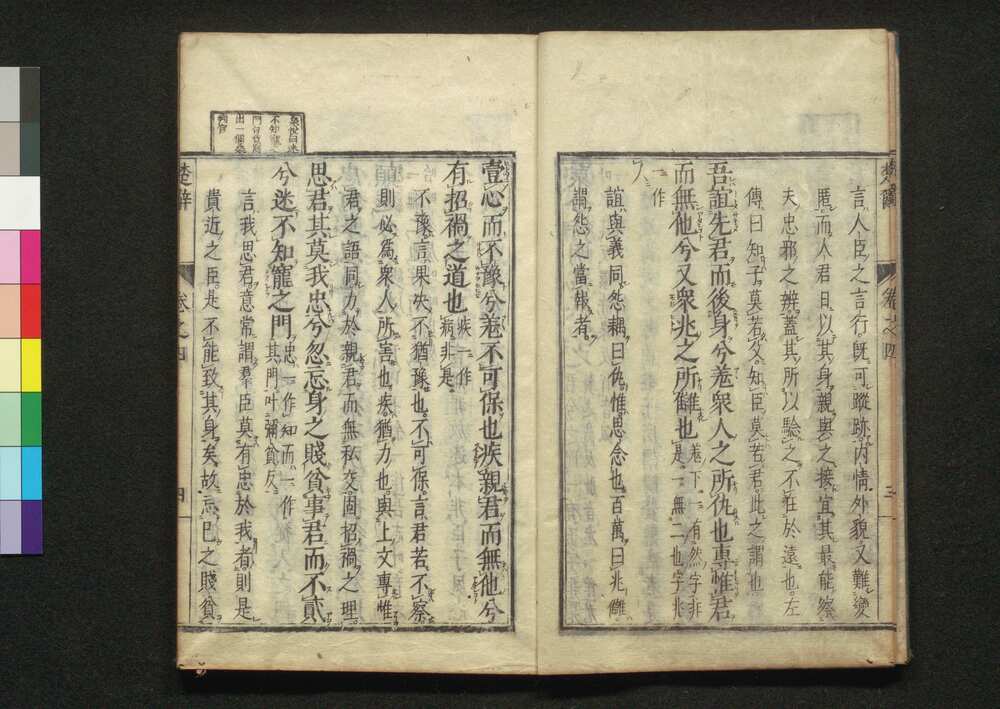 言人臣之言行既可蹤跡内情外貌又難變
匿而人君日以其身親與之接宜其最能察
夫忠邪之辨蓋其所以驗之不在於遠也左
傳曰知子莫若父知臣莫若君此之謂也
吾誼先君而後身兮羌衆人之所仇也專惟君
而無他兮又衆兆之所讎也羌下一有然字非是一無二也字兆
一作
人
誼與義同怨耦曰仇惟思念也百萬曰兆讎
謂怨之當報者
楚辭 卷之四 三
壹心而不豫兮羌不可保也疾親君而無他兮
有招禍之道也疾一作病非是
不豫言果決不猶豫也不可保言君若不察
則必為衆人所害也疾猶力也與上文專惟
君之語同力於親君而無私交固招禍之理
思君其莫我忠兮忽忘身之賤貧事君而不貳
兮迷不知寵之門忠一作知而一作其門叶彌貧反
言我思君意常謂羣臣莫有忠於我者則是
貴近之臣是不能致其身矣故忘已之賤貧
楚辭 卷之四 四